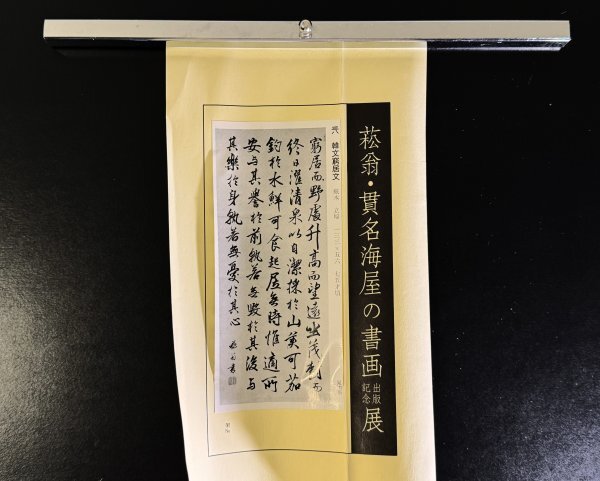 菘翁・貫名海屋の書画
出版
記念
展
韓文窮居文 紙本 立幅 七五才頃
窮居而野處升高而望遠坐茂樹以
終日濯清泉以自潔採於山美可茹
釣於水鮮可食起居無時惟適所
安与其譽於前孰若無毀於其後与
其樂於身孰若無憂於其心 菘翁書